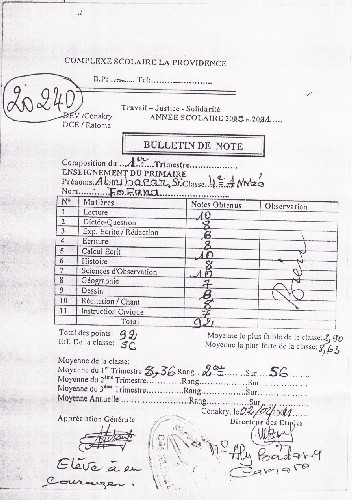 COMPLEXE SCOLAIRE LA PROVIDENCE
B.P: ........ Tel: ....................
20240
Travail – Justice - Solidarité
DEV /Conakry ANNEE SCOLAIRE
DCE / Ratoma
BULLETIN DE NOTE
Composition du ....1er....Trimestre....................
ENSEIGNEMENT DU PRIMAIRE
Prénoms. Classe 4è ANNéé
Nom. Fofana
N° Matières Notes Obtenus Observation
1 Lecture 10
2 Dictée-Question 8
3 Exp. Ecrite / Rédaction 8
4 Ecriture 8
5 Calcul Ecrit 10
6 Histoire 8
7 Sciences d'Observation 10
8 Géographie 7
9 Dessin
10 Récitation / Chant 8
11 Instruction Civique 7
Total 92
Total des points: 92 Moyenne le plus faible de la classe:
Eff. De la classe: 56 Moyenne la plus forte de la classe: 8,63
Moyenne de la classe:
Moyenne du 1er Trimestre 8,36 Rang 2è Sur 56
Moyenne du 2ème Trimestre..............Rang..............Sur..............
Moyenne du 3ème Trimestre..............Rang..............Sur..............
Moyenne Annuelle..............Rang..............Sur..............
Conakry, le
Appréciation Générale Directeur des Etudes
Elève à en
courager.
Camara